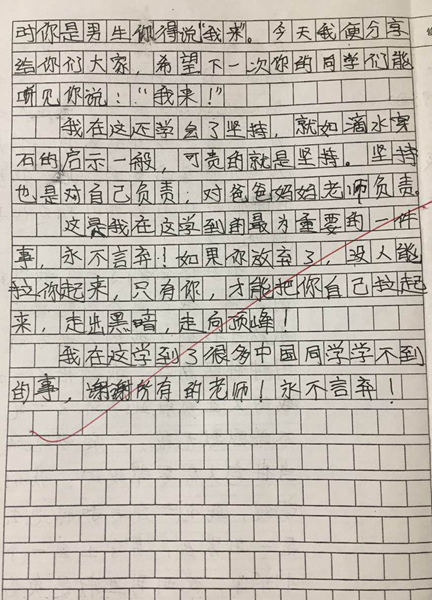 时你是男生你得说“我来”。今天我便分享
给你们大家，希望下一次你的同学们能
听见你说：“我来！”
我在这还学会了坚持，就如滴水穿
石的启示一般，可贵的就是坚持。坚持
也是对自己负责，对爸爸妈妈老师负责。
这是我在这学到的最为重要的一件
事，永不言弃！如果你放弃了，没人能
拉你起来，只有你，才能把你自己拉起
来，走出黑暗，走向顶峰！
我在这学到了很多中国同学学不到
的事，谢谢所有的老师！永不言弃！